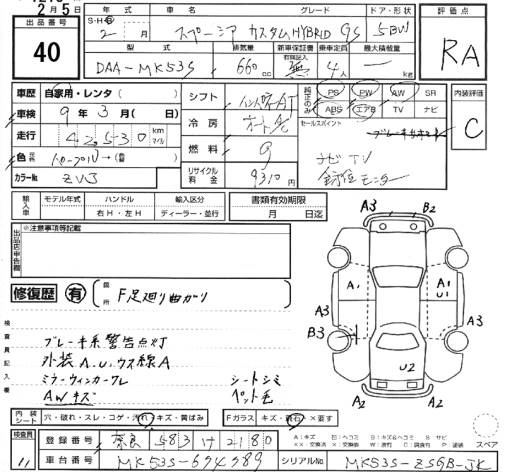 2月5日
出品番号 40
年式 S・H・R 2年 月
車名 スペーシア カスタムHYBRID
グレード GS
ドア・形状 5 BV
評価点 RA
型式 DAA-MK53S
排気量 660cc
新車保証書 有(記入) 無
乗車定員 4人
最大積載量 kg
車歴 自家用・レンタ( )
車検 9年3月( 日)
走行 42530 km マイル
色 元色 →(色替)
カラーNo. ZVJ
シフト インパネAT
冷房 オートAC
燃料 G
リサイクル料金 9310円
純正のみ PS PW AW SR
ABS エアB TV ナビ
内装評価 C
セールスポイント
ブレーキサポート
ナビTV
全方位モニター
輸入車 モデル年式 年
ハンドル 右H・左H
輸入区分 ディーラー・並行
書類有効期限 月 日迄
出品店申告欄 ※注意事項等記載
修復歴 有 箇所 F足廻り曲がり
検査員記入欄
ブレーキ系警告点灯
外装A.U.ウス線A
ミラーウィンカーワレ
AWキズ
シートシミ
ペット毛
A3 B2
A1 A1
U1
A3 A3
B3
U2
A2 A2
内装シート 穴・破れ・スレ・コゲ・汚れ・キズ・黄ばみ
Fガラス キズ・飛石・×要す
スペア
検査員 11
登録番号 奈良 583 け 2180
車台番号 MK53S-694389
シリアルNo. MK53S-ZSGB-JK